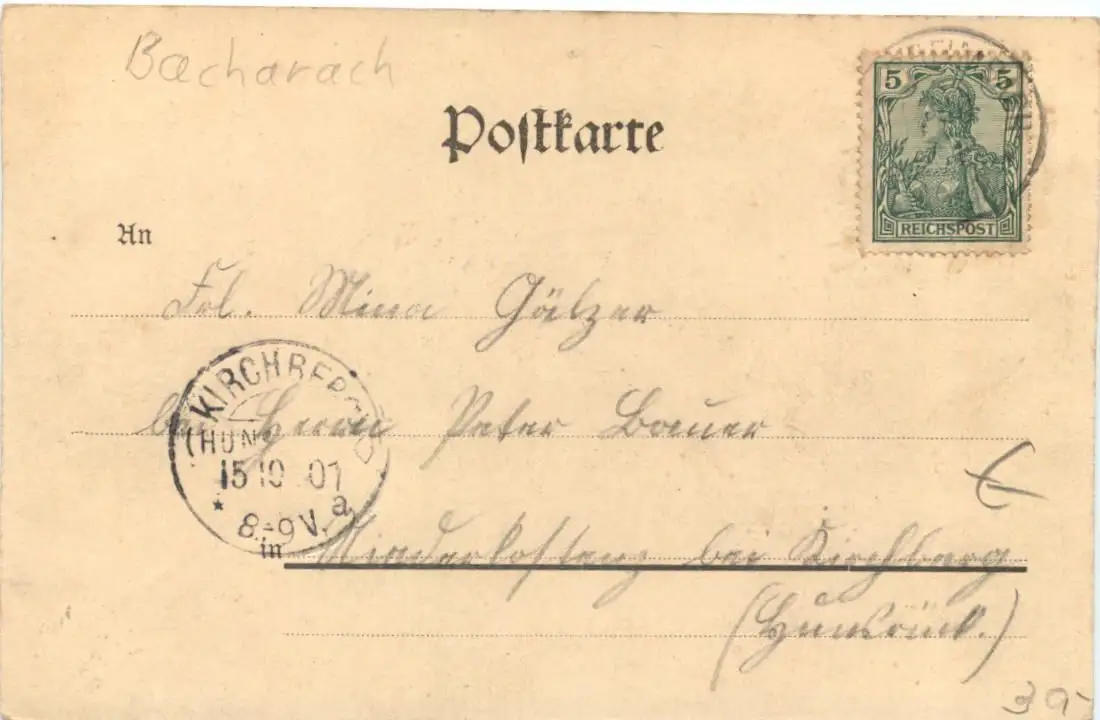 Bacharach
5 5
REICHSPOST
Postkarte
An
Frl. Mina Gälzer
bei Herrn Peter Bauer
KIRCHBERG
(HUNS
15 10 01
8-9V. a
in Niederkostenz bei Kirchberg
(Hunsrück.)
39-